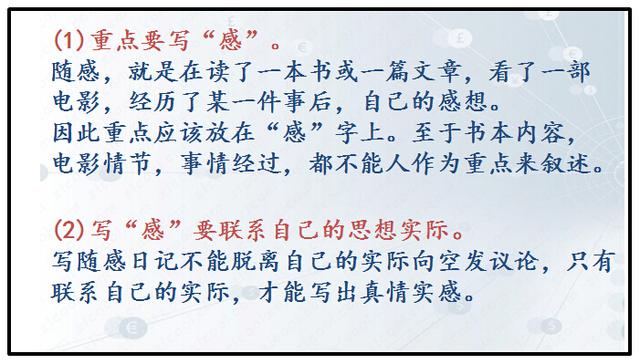 (1)重点要写“感”。
随感，就是在读了一本书或一篇文章，看了一部
电影，经历了某一件事后，自己的感想。
因此重点应该放在“感”字上。至于书本内容，
电影情节，事情经过，都不能人作为重点来叙述。
(2)写“感”要联系自己的思想实际。
写随感日记不能脱离自己的实际向空发议论，只有
联系自己的实际，才能写出真情实感。